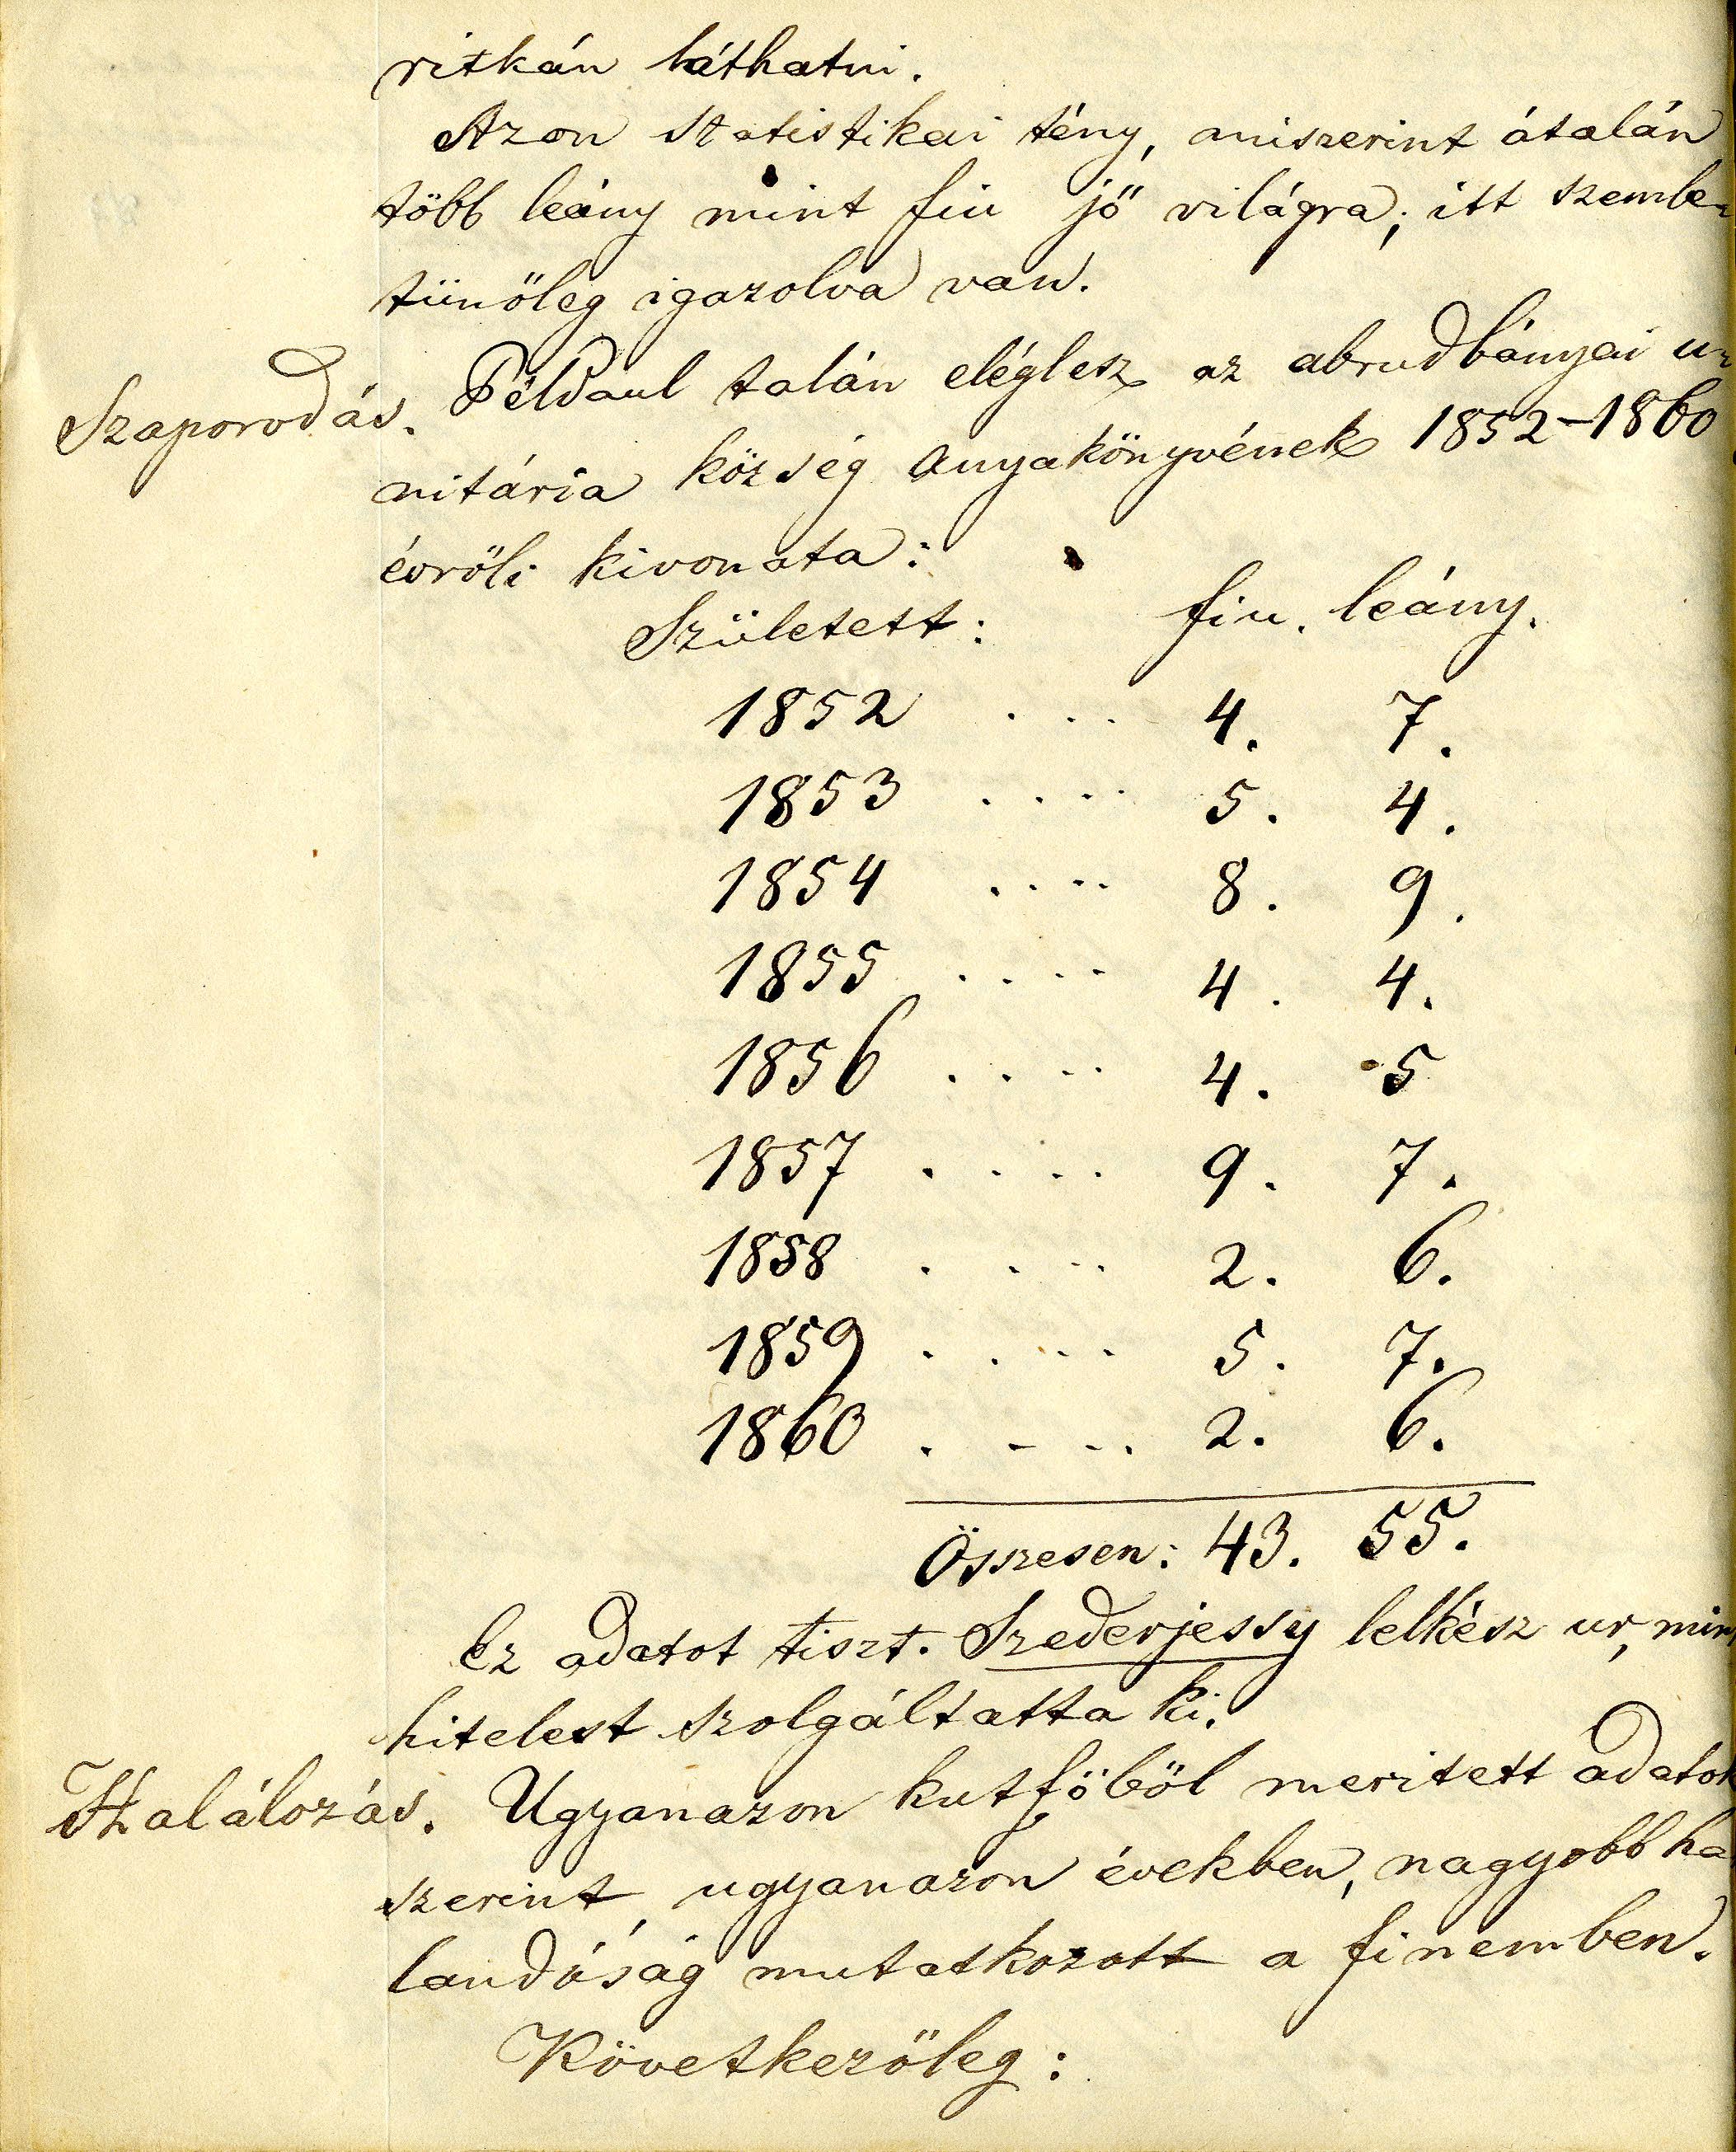 ritkán láthatni.
Azon statistikai tény, miszerint átalán
több leány mint fiu jő világra; itt szembe-
tünőleg igazolva van.
Szaporodás. Például talán eléglesz az abrudbányai u-
nitária község anyakönyvének 1852–1860
évröli kivonata:
Született: fiu. leány.
1852 . . . 4. 7.
1853 . . . . 5. 4.
1854 . . . . 8. 9.
1855 . . . . 4. 4.
1856 . . . . 4. 5
1857 . . . . 9. 7.
1858 . . . . 2. 6.
1859 . . . . 5. 7.
1860 . . . . 2. 6.
Összesen: 43. 55.
Ez adatot tiszt. Szederjessy lelkész ur, min
hitelest szolgáltatta ki.
Halálozás. Ugyanazon kutföböl meritett adatok
szerint, ugyanazon években, nagyobb ha
landóság mutatkozott a finemben.
Következőleg: